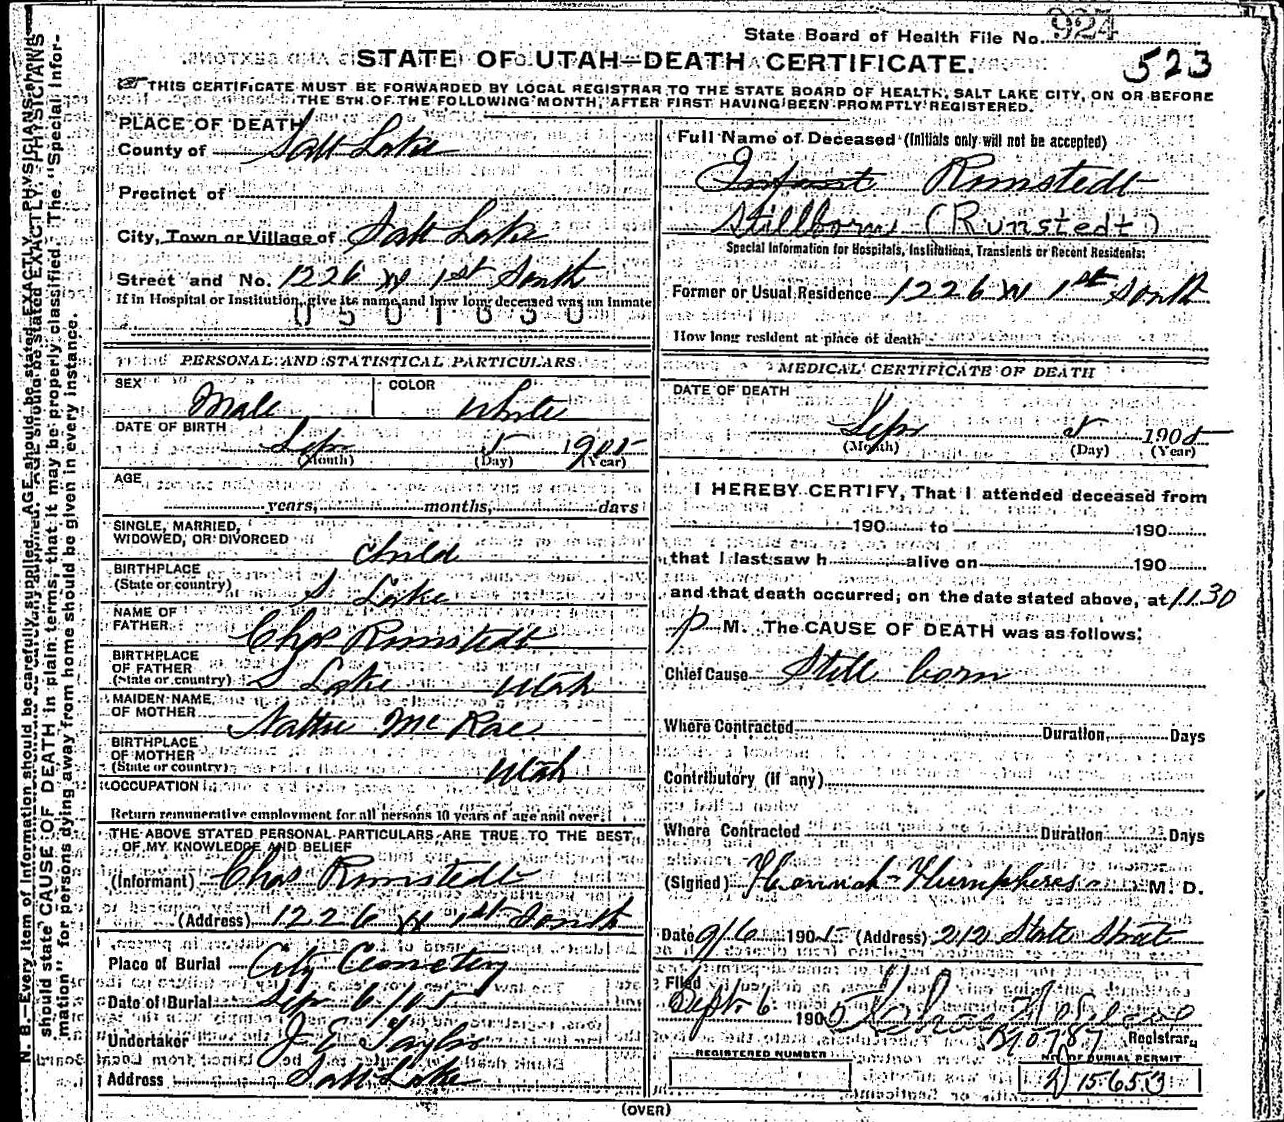 State Board of Health File No. 924
523
STATE OF UTAH—DEATH CERTIFICATE.
THIS CERTIFICATE MUST BE FORWARDED BY LOCAL REGISTRAR TO THE STATE BOARD OF HEALTH, SALT LAKE CITY, ON OR BEFORE
THE 5TH OF THE FOLLOWING MONTH, AFTER FIRST HAVING BEEN PROMPTLY REGISTERED.
N. B.—Every item of information should be carefully supplied. AGE should be stated EXACTLY. PHYSICIANS
should state CAUSE OF DEATH in plain terms, that it may be properly classified. The "Special Infor-
mation" for persons dying away from home should be given in every instance.
PLACE OF DEATH
County of Salt Lake
Precinct of
City, Town or Village of Salt Lake
Street and No. 1226 W 1st South
If in Hospital or Institution, give its name and how long deceased was an inmate
0501830
PERSONAL AND STATISTICAL PARTICULARS
SEX Male COLOR White
DATE OF BIRTH Sep 5 1905
(Month) (Day) (Year)
AGE
years, months, days
SINGLE, MARRIED,
WIDOWED, OR DIVORCED Child
BIRTHPLACE
(State or country) S Lake
NAME OF
FATHER Chas Rumstedt
BIRTHPLACE
OF FATHER
(State or country) S Lake Utah
MAIDEN NAME
OF MOTHER Nattie McRae
BIRTHPLACE
OF MOTHER
(State or country) Utah
OCCUPATION
Return remunerative employment for all persons 10 years of age and over
THE ABOVE STATED PERSONAL PARTICULARS ARE TRUE TO THE BEST
OF MY KNOWLEDGE AND BELIEF
(Informant) Chas Rumstedt
(Address) 1226 W 1st South
Place of Burial City Cemetery
Date of Burial Sep 6/05
Undertaker J E Taylor
Address Salt Lake
Full Name of Deceased (Initials only will not be accepted)
Infant Rumstedt
Stillborn (Runstedt)
Special Information for Hospitals, Institutions, Transients or Recent Residents:
Former or Usual Residence 1226 W 1st South
How long resident at place of death
MEDICAL CERTIFICATE OF DEATH
DATE OF DEATH
Sep 5 1905
(Month) (Day) (Year)
I HEREBY CERTIFY, That I attended deceased from
190 to 190
that I last saw h alive on 190
and that death occurred, on the date stated above, at 11.30
p M. The CAUSE OF DEATH was as follows:
Chief Cause Still born
Where Contracted Duration Days
Contributory (if any)
Where Contracted Duration Days
(Signed) Hannah Humpheres M. D.
Date 9/6 1905 (Address) 212 State Street
Filed
Sept. 6 1905
Registrar
REGISTERED NUMBER
NO. OF BURIAL PERMIT
15653
(OVER)